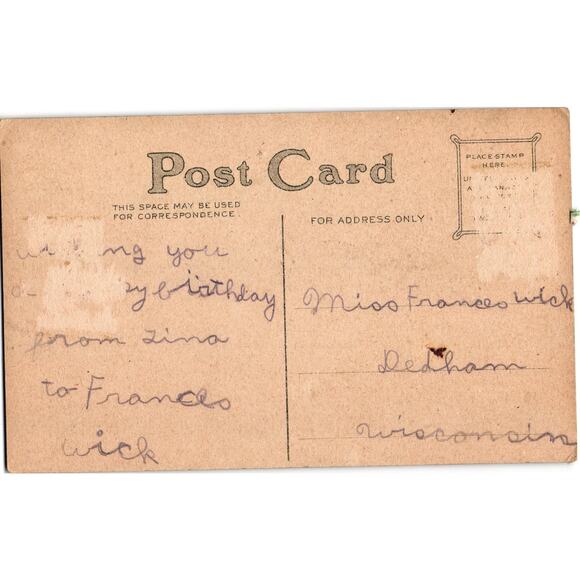 Post Card
THIS SPACE MAY BE USED
FOR CORRESPONDENCE.
FOR ADDRESS ONLY
PLACE STAMP
HERE.
you
birthday
from Lina
to Frances
wick
Miss Frances wick
Dedham
wisconsin